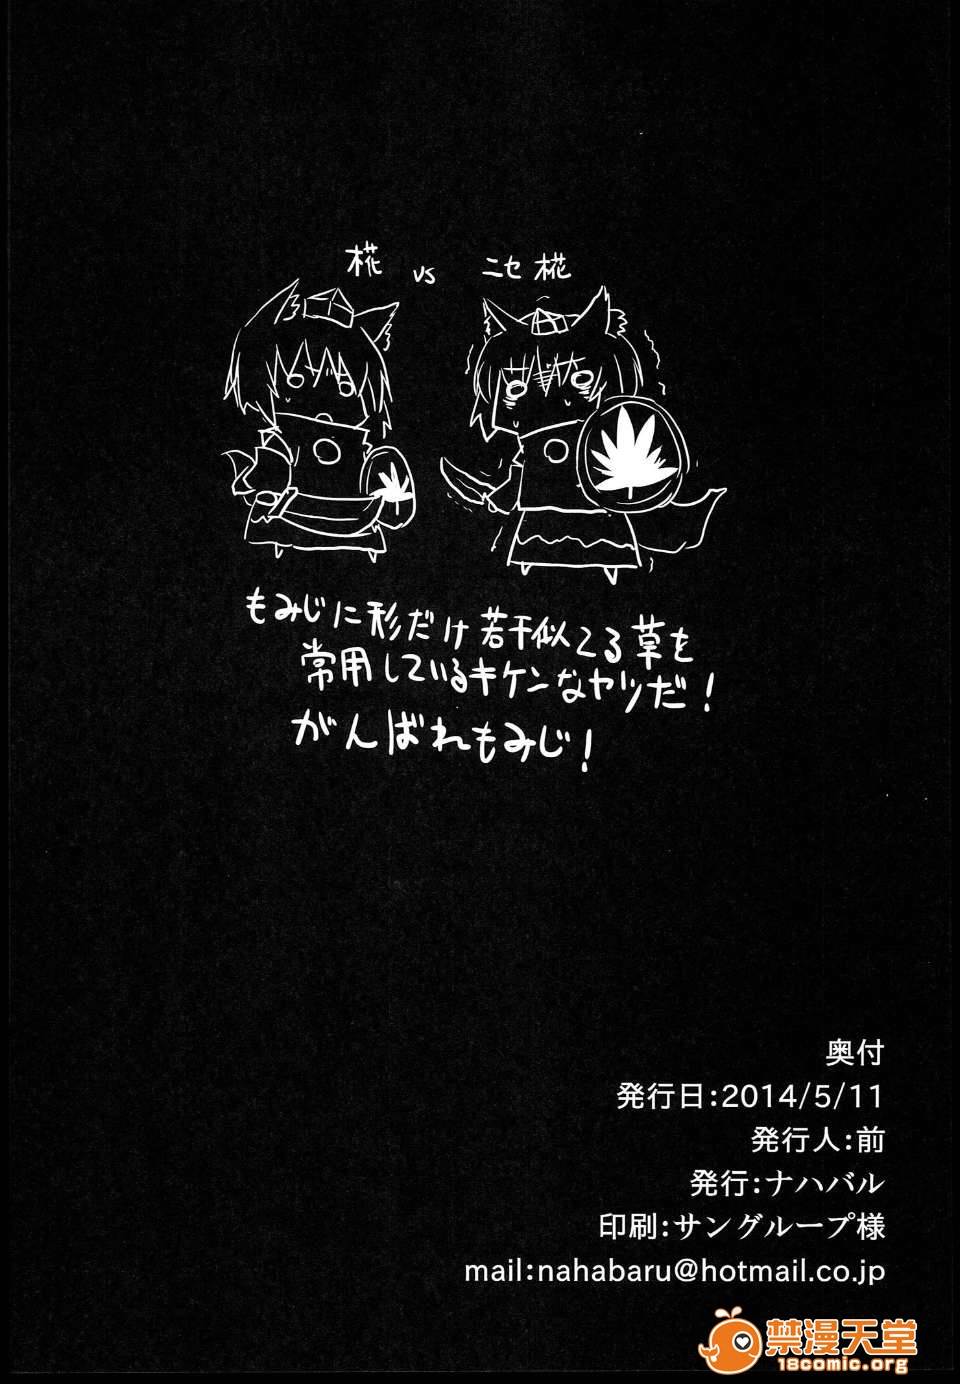 椛 vs ニセ椛
もみじに形だけ若干似てる草を
常用しているキケンなヤツだ!
がんばれもみじ!
奥付
発行日:2014/5/11
発行人:前
発行:ナハバル
印刷:サングループ様
mail:nahabaru@hotmail.co.jp
禁漫天堂
18comic.org